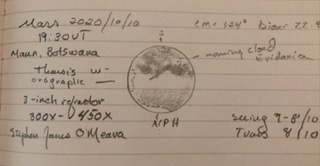 Mars 2020/10/10
19:30UT
CM=124° Diam=22.4
S
Maun, Botswana
morning cloud
Eridania
Tharsis w-
orographic
3-inch refractor
300x-450x
NPH
Stephen James O'Meara
seeing 7-8/10
Trans 8/10